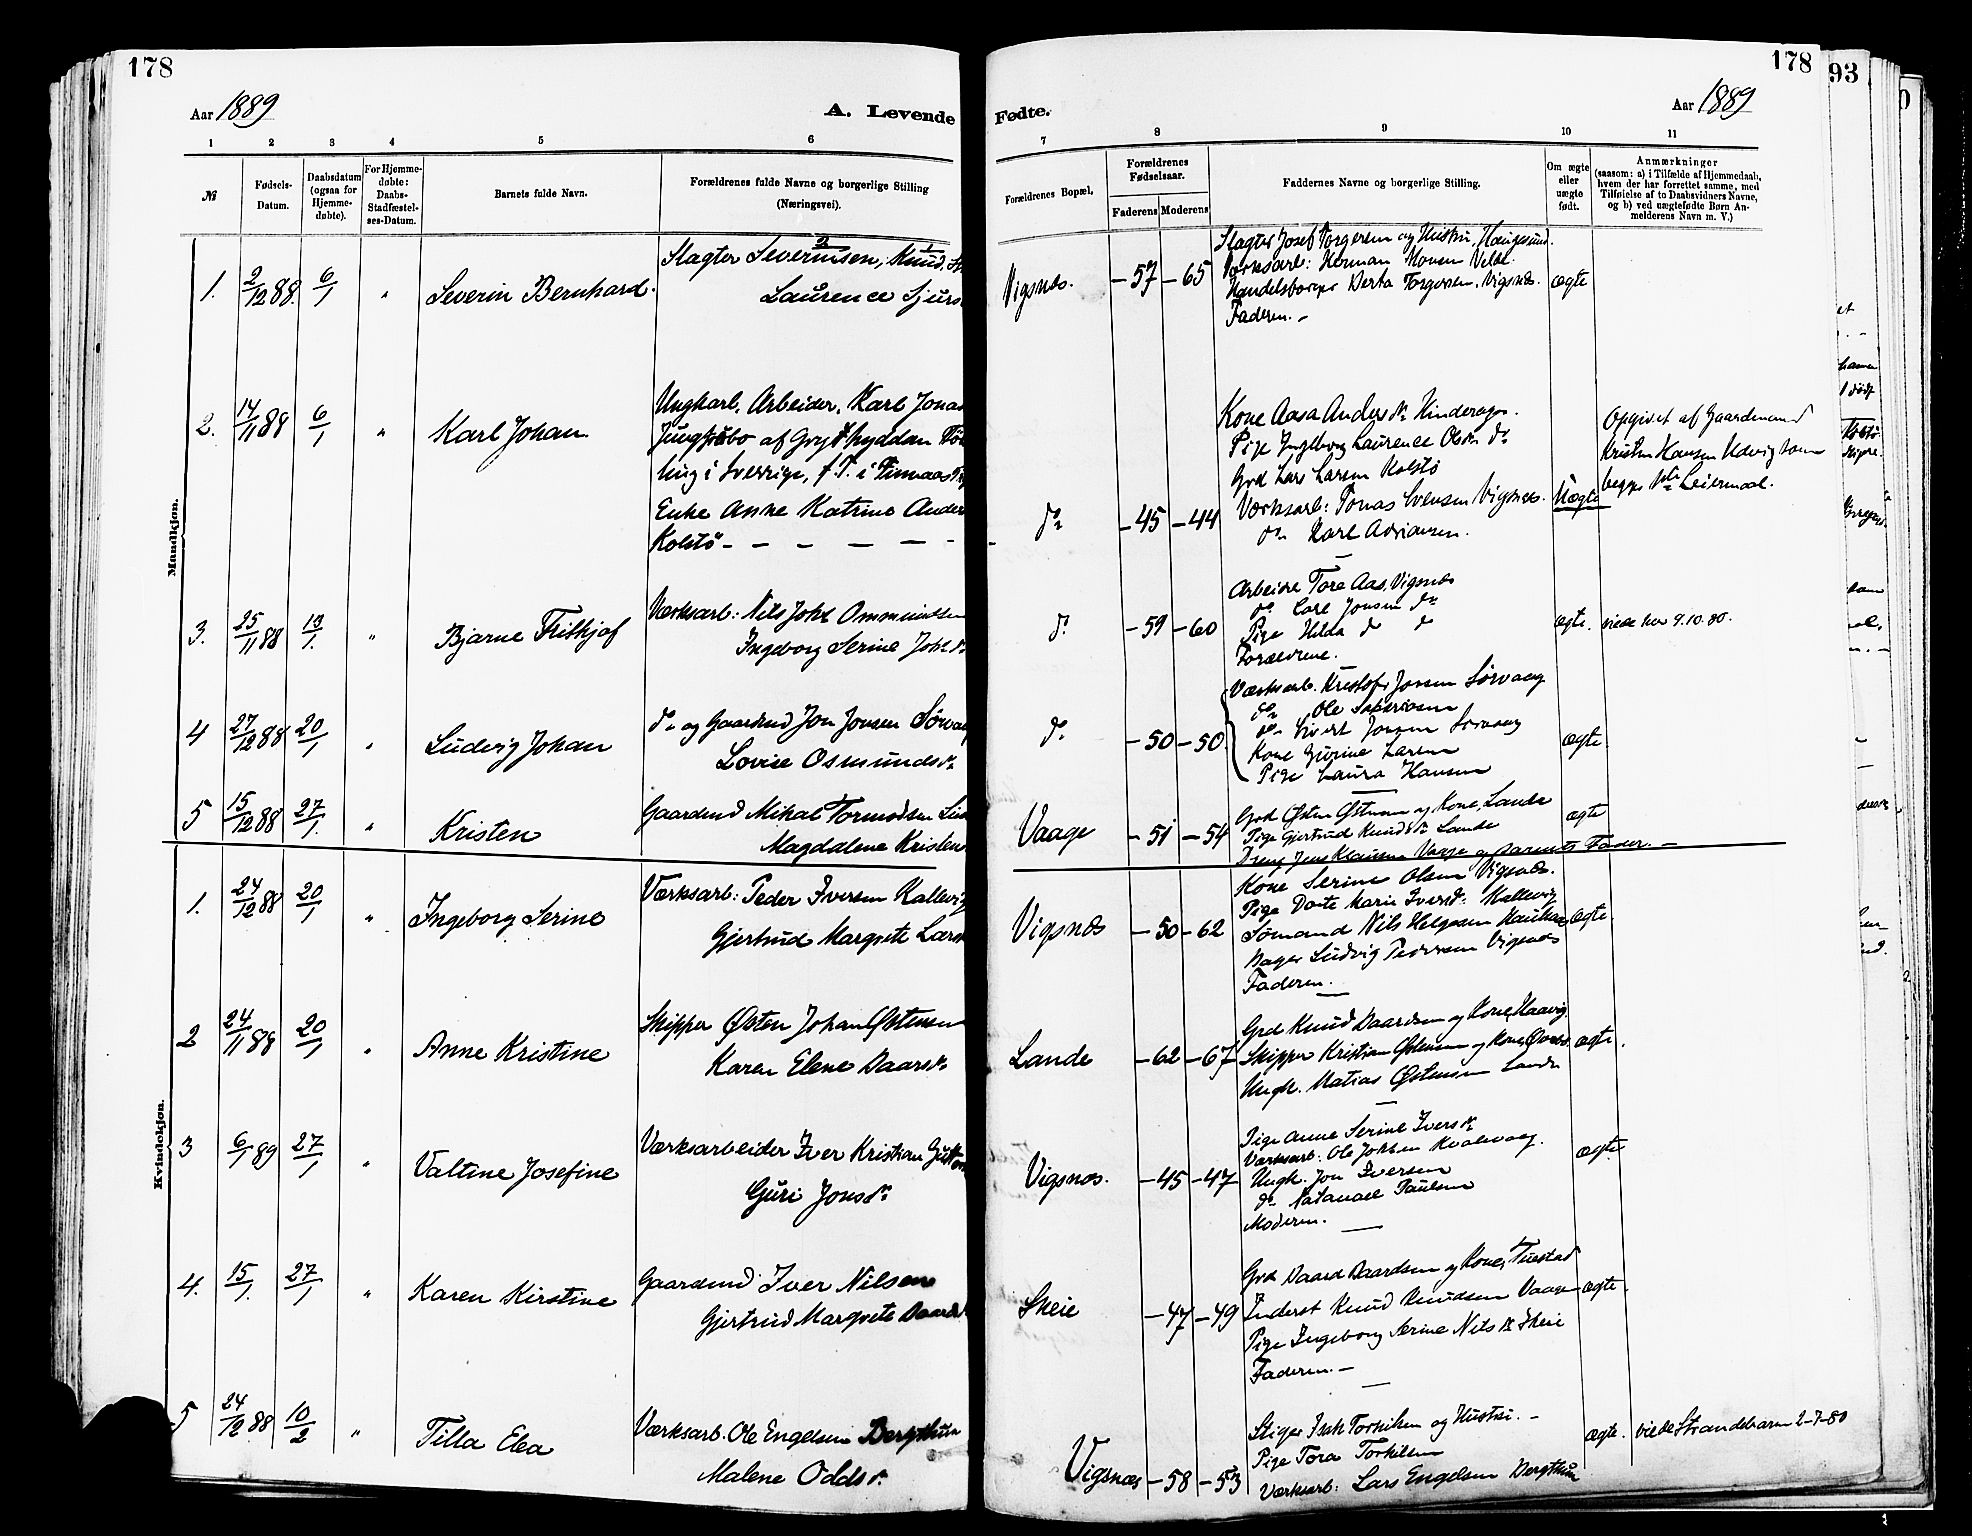 178
Aar 1889
A. Levende
1 2 3 4 5 6
№
Fødsels-Datum.
Daabsdatum (ogsaa for Hjemme-døbte).
For Hjemme-døbte: Daabs-Stadfæstel-ses-Datum.
Barnets fulde Navn.
Forældrenes fulde Navne og borgerlige Stilling
(Næringsvei).
Mandkjøn.
1. 2/12 88. 6/1 " Severin Bernhard.
Slagter Severinsen, Knud
Laurence Sjurs
2. 14/11 88 6/1 " Karl Johan
Ungkarl. Arbeider, Karl Jonas
af
i Sverrige, f. T. i
Enke Anne Katrine Anders
Kolstö
3. 25/11 88 13/1. " Bjarne Frithjof
Værksarb: Nils Johs Ommundsen
Ingeborg Serine Johs dr
4 27/12 88 20/1 " Ludvig Johan
do og Gaardmd Jon Jonsen Sørvaag
Lovise Osmundsdr
5 15/12 88 27/1. " Kristen
Gaardmd Mikal Tormodsen
Magdalene Kristens
Kvindekjøn.
1. 24/12 88 20/1 " Ingeborg Serine
Værksarb: Peder Iversen Kallevig
Gjertrud Margrete Lars
2 24/11 88 20/1 " Anne Kristine
Skipper Østen Johan Østensen
Karen Elene Daarsdr
3 6/1 89 27/1 " Valtine Josefine
Værksarbeider Iver Kristian
Guri Jonsdr
4. 15/1. 27/1 " Karen Kirstine
Gaardmd Iver Nilsen
Gjertrud Margrete Daards
5 24/12 88 10/2 " Tilla Elea
Værksarb. Ole Engelsen Bergthun
Malene Oddsdr.
178
Fødte.
Aar 1889
7 8 9 10 11
Forældrenes Bopæl.
Forældrenes Fødselsaar.
Faderens Moderens
Faddernes Navne og borgerlige Stilling.
Om ægte eller uægte født.
Anmærkninger
(saasom: a) i Tilfælde af Hjemmedaab, hvem der har forrettet samme, med Tilføielse af to Daabsvidners Navne, og b) ved uægtefødte Børn An-melderens Navn m. V.)
Vigsnæs. -57 -65
Slagter Josef Torgersen og Hustru, Haugesund.
Værksarb: Herman Monsen Velde.
Handelsborger Berta Torgersen. Vigsnæs.
Faderen. -
ægte
do -45 -44
Kone Aasa Andersdr Hinderager.
Pige Ingeborg Laurence Olsdr do
Grd Lars Larsen Kolstö
Værksarb: Jonas Svensen Vigsnæs.
do Karl Adriansen.
Uægte
Opgivet af Gaardmand
Kristen Hansen
begges 1ste Leiermaal.
do -59 -60
Arbeider Tore Aas, Vigsnæs
do Carl Jonsen do
Pige Hilda do do
Forældrene.
ægte. viede her 9.10.80.
do -50 -50
Værksarb. Kristofer Jonsen Sørvaag
do Ole
do Sivert Jonsen Sørvaag
Kone Gurine Larsen
Pige Laura Hansen
ægte
Vaage -51 -54
Grd Østen Østensen og Kone, Lande
Pige Gjertrud Knudsdr Lande
Dreng Jens Klausen Vaage og Barnets Fader. -
ægte
Vigsnæs -50 -62
Kone Serine Olsen Vigsnæs.
Pige Dorte Marie Iversdr Kallevig
Sømand Nils Helgesen
Bager Ludvig Pedersen Vigsnæs
Faderen.
ægte.
Lande -62 -67
Grd Knud Daardsen og Kone,
Skipper Kristian Østensen og Kone,
Ungk. Matias Østensen Lande
ægte.
Vigsnæs. -45 -47
Pige Anne Serine Iversdr
Værksarb: Ole Johsen Kvalevaag.
Ungk. Jon Iversen
do Natanael Paulsen
Moderen.
ægte.
Skeie -47 -49
Grd Daard Daardsen og Kone, Tuestad
Inderst Knud Knudsen Vaage
Pige Ingeborg Serine Nilsdr Skeie
Faderen. -
ægte.
Vigsnæs -58 -53
Stiger Isak Torkilsen og Hustru. -
Pige Tora Torkilsen
Værksarb: Lars Engelsen Bergthun
ægte. viede Strandebarm 2-7-80
93